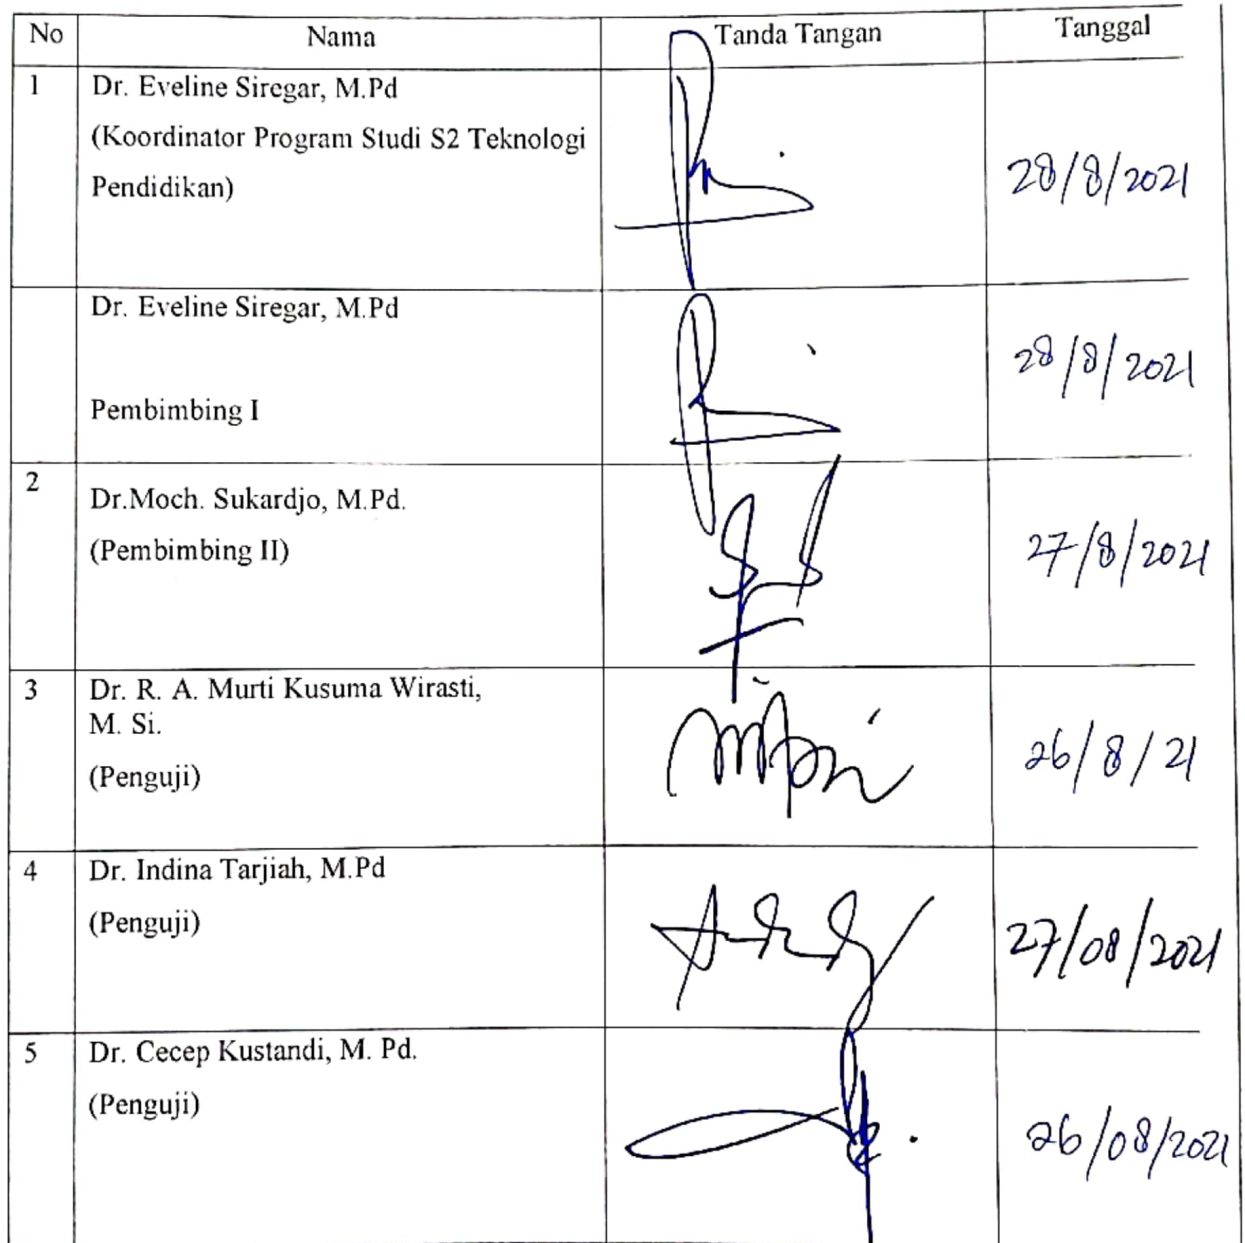 No Nama Tanda Tangan Tanggal
1 Dr. Eveline Siregar, M.Pd
(Koordinator Program Studi S2 Teknologi
Pendidikan)
28/8/2021
Dr. Eveline Siregar, M.Pd
28/8/2021
Pembimbing I
2
Dr.Moch. Sukardjo, M.Pd.
(Pembimbing II)
27/8/2021
3 Dr. R. A. Murti Kusuma Wirasti,
M. Si.
26/8/21
(Penguji)
4 Dr. Indina Tarjiah, M.Pd
(Penguji)
27/08/2021
5 Dr. Cecep Kustandi, M. Pd.
(Penguji)
26/08/2021